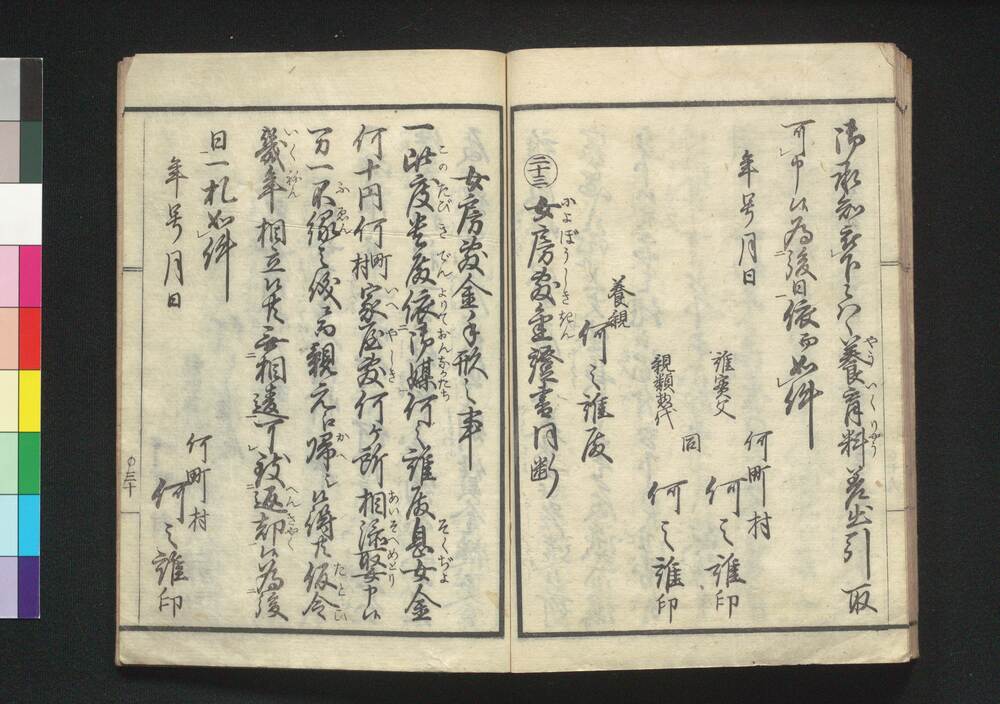 御承知被下候ハヾ養育料差出引取
可申候為後日依而如件
年号月日
何町村
誰実父
何之誰印
親類惣代
同
何之誰印
養親
何之誰殿
二十三 女房敷金證書同断
女房敷金手形之事
一此度貴殿依御媒何之誰殿息女金
何十円何町村家屋敷何ヶ所相添娶申候
万一不縁之儀ニ而親元江帰し候得共仮令
幾年相立候共無相違可致返却候為後
日一札如件
年号月日
何町村
何之誰印
○三十